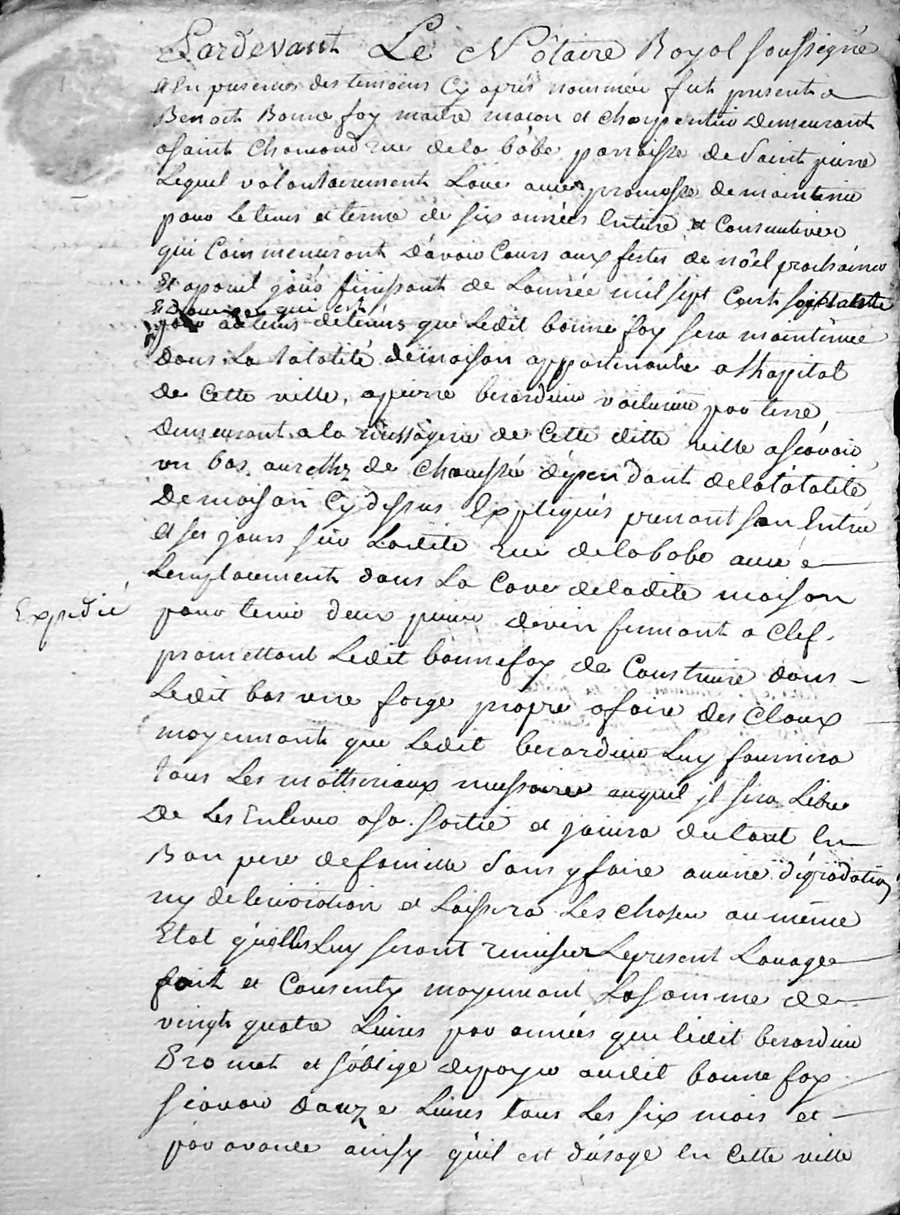 Pardevant Le Nôtaire Royal soussigné
et En presence des temoins Cy aprés nommés fut present
Benoit Bonnefoy maitre macon et charpentier demeurant
a saint Chamond rue de la bobe parroisse de Saint pierre
Lequel volontairement Loue avec promesse de maintenir
pour le tems et terme de six années Entiere et Consecutives
qui Commenceront d'avoir Cours aux festes de noêl prochaines
Et a pareil jour finissant de L'année mil sept Cent
que Ledit bonnefoy sera maintenue
dans La totalité de maison appartenante a lhopital
de Cette ville, a pierre berardier voiturier par terre
demeurant a la messagerie de Cette ditte ville ascavoir
un bas au rethz de Chaussé dépendant de la totalité
de maison Cy dessus Expliquée prenant son Entrée
et ses jours sur Ladite rue de la bobe avec
Lemplacement dans La Cave de ladite maison
Expedié
pour tenir deux piece de vin fermant a Clef
promettant Ledit bonnefoy de Construire dans
Ledit bas une forge propre a faire des Cloux
moyennant que Ledit berardier Luy fournira
tous Les matteriaux necessaires auquel jl sera Libre
de Les Enlever a sa sortie et jouira du tout En
Bon pere de famille sans y faire aucune dégradation
ny deterioration et Laissera Les choses au même
Etat qu'elles Luy seront remises Le present Louage
fait et Consenty moyennant La somme de
vingt quatre Livres par années que Ledit berardier
Promet et s'oblige de payer audit bonnefoy
scavoir douze Livres tous Les six mois et
par avance ainsy qu'il est d'usage En Cette ville